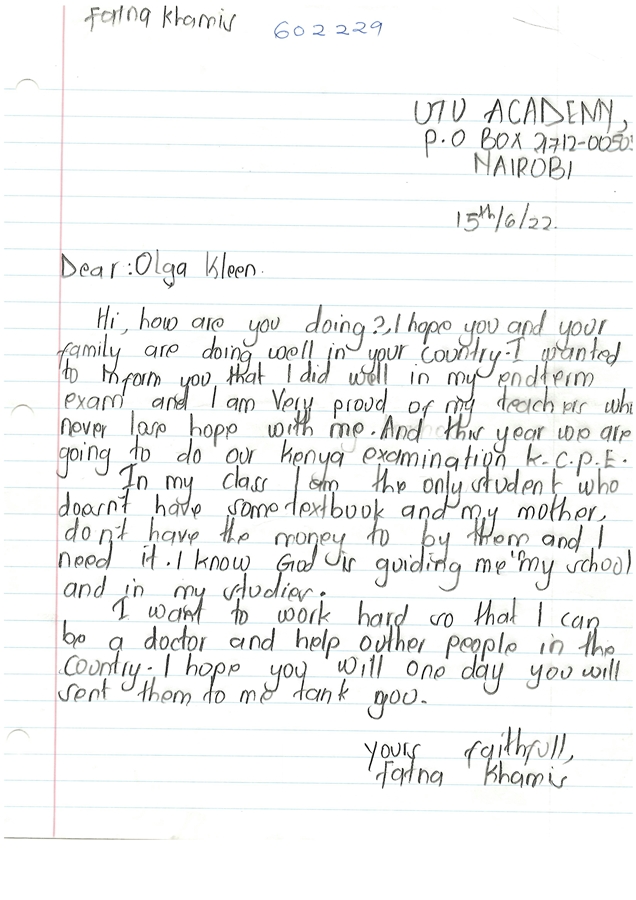 Fatna Khamis 602229
UTU ACADEMY,
P.O BOX 21712-00505
NAIROBI
15th/6/22.
Dear:Olga Kleen.
Hi, how are you doing?, I hope you and your
family are doing well in your country. I wanted
to Inform you that I did well in my endterm
exam and I am very proud of my teachers who
never lose hope with me. And this year we are
going to do our kenya examination k.C.P.E.
In my class I am the only student who
doesn't have some textbook and my mother,
don't have the money to by them and I
need it. I know God is guiding me "my school
and in my studies.
I want to work hard so that I can
be a doctor and help outher people in the
country. I hope you will one day you will
sent them to me tank you.
yours faithfull,
Fatna Khamis